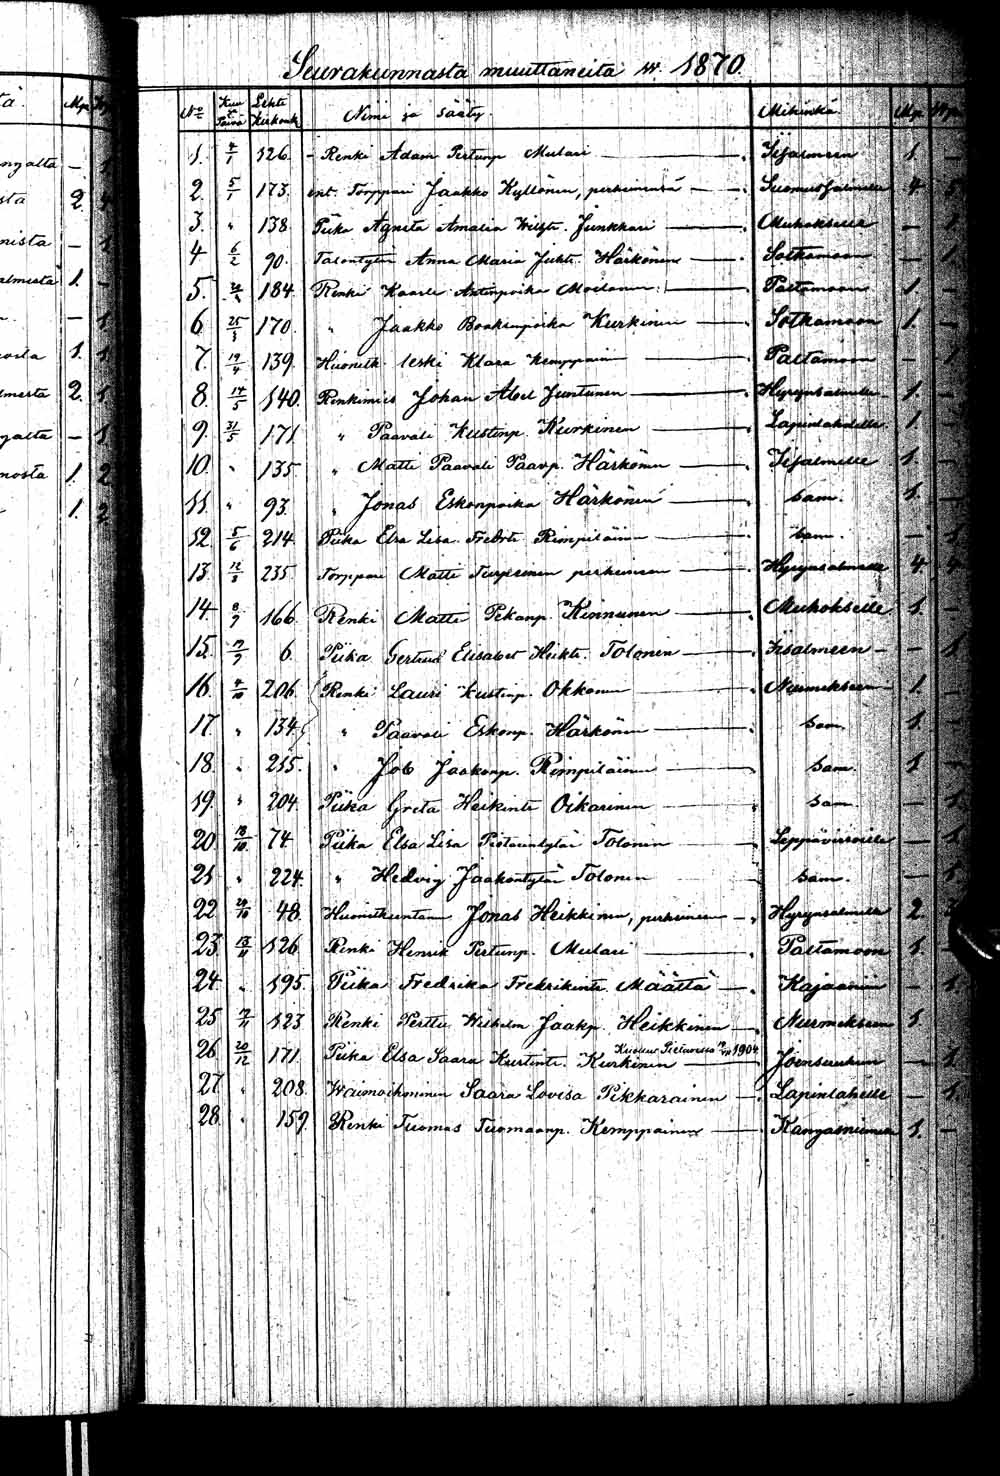 Seurakunnasta muuttaneita w. 1870.
No Kuu ja Päivä Lehti Kirkonk. Nimi ja sääty. Mihinkä. Mp. Wp.
1. 4/1 126. Renki Adam Pertunp. Mulari Iisalmeen 1. —
2. 5/1 173. ent. Torppari Jaakko Kyllönen, perheinensä Suomussalmelle 4. 5.
3. " 138. Piika Agneta Amalia Junkkari Muhokselle — 1.
4. 6/2 90. Talontytär Anna Maria Juht. Härkönen Sotkamoon — 1.
5. 184. Renki Kaarle Antinpoika Moilanen Paltamoon 1. —
6. 25/3 170. " Jaakko Kurkinen Sotkamoon 1. —
7. 19/4 139. Huoneth. leski Klara Kemppain Paltamoon — 1.
8. 14/5 140. Renkimies Johan Abel Juntunen Hyrynsalmelle 1. —
9. 31/5 171. " Paavali Kustinp. Kurkinen Lapinlahdelle 1. —
10. " 135. " Matti Paavali Paavp. Härkönen Iisalmelle 1. —
11. " 93. " Jonas Eskonpoika Härkönen sam. 1. —
12. 5/6 214. Piika Elsa Lisa Rimpiläinen sam. — 1.
13. 12/8 235. Torppari Matti Turpeinen perheineen Hyrynsalmelle 4. 4.
14. 8/9 166. Renki Matti Pekanp. Kinnunen Muhokselle 1. —
15. 6. Piika Gertrud Elisabet Heikt. Tolonen Iisalmeen — 1.
16. 4/10 206. Renki Lauri Kustinp. Okkonen Nurmekseen 1. —
17. " 134. " Paavali Eskonp. Härkönen sam. 1. —
18. " 215. " Job Jaakonp. Rimpiläinen sam. 1. —
19. " 204. Piika Greta Heikint. Oikarinen sam. — 1.
20. 18/10 74. Piika Elsa Lisa Tolonen Leppävirroille — 1.
21. " 224. " Hedvig Jaakontytär Tolonen sam. — 1.
22. 29/10 48. Jonas Heikkinen, perheineen Hyrynsalmelle 2. 3.
23. 13/11 126. Renki Henrik Pertunp. Mulari Paltamoon 1. —
24. " 195. Piika Fredrika Fredrikint. Määttä Kajaaniin — 1.
25. 17/11 123. Renki Perttu Wilhelm Jaakp. Heikkinen Nurmekseen 1.
Kuollut Pietarissa 1904
26. 20/12 171. Piika Elsa Saara Kustint. Kurkinen Joensuuhun — 1.
27. " 208. Waimoihminen Saara Lovisa Pikkarainen Lapinlahelle — 1.
28. " 159. Renki Tuomas Tuomaanp. Kemppainen Kangasniemelle 1. —